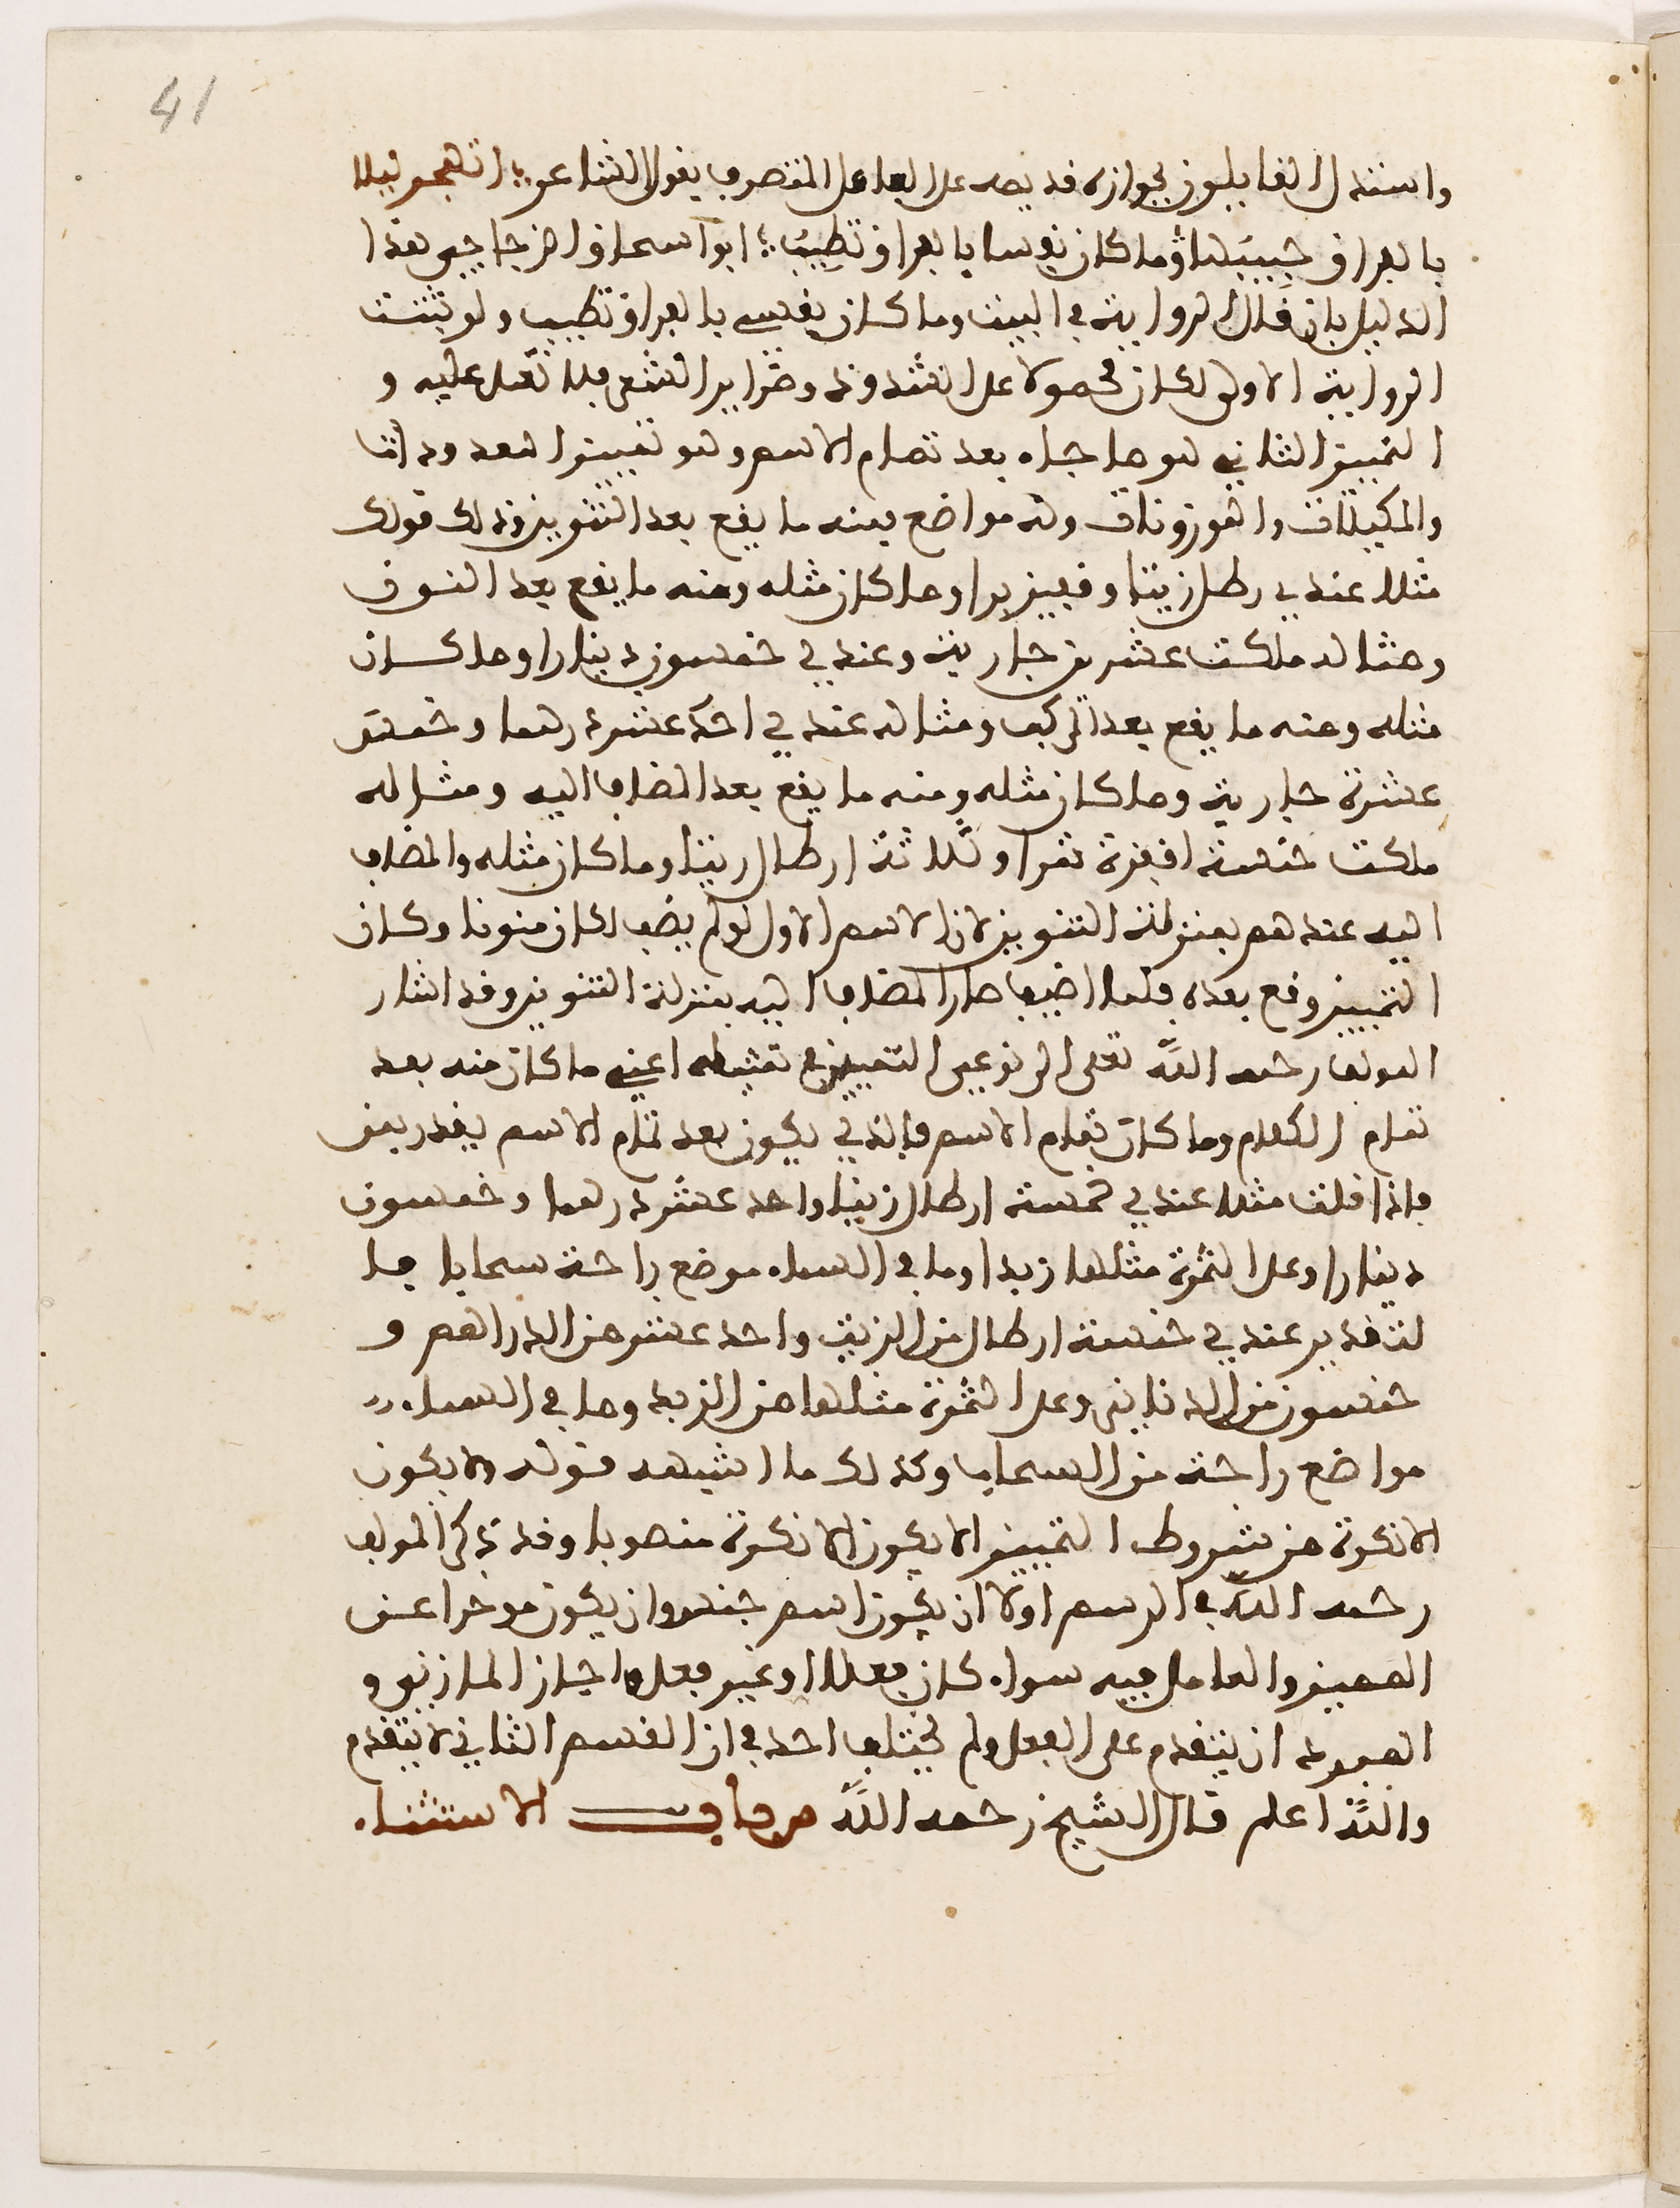 41
واستدل القايلون بجوازه قديمه على العامل المتصرف بقول الشاعر ؛ اتهجر ليلا
بالعراق حبيبها وما كان نفسا بالعراق تطيب ؛ ابو اسحاق الزجاجي هذا
الدليل بان قال الرواية في البيت وما كان نفسي بالعراق تطيب ولو ثبتت
الرواية الاولى لكان محمولا على الشذوذ وضراير الشعر فلا تعمل عليه و
التمييز الثاني هو ما جاء بعد تمام الاسم وهو تمييز المعدودات
والمكيلات والموزونات وله مواضع فمنه ما يقع بعد التنوين وذلك قولك
مثلا عندي رطل زيتا وقفيز برا وما كان مثله ومنه ما يقع بعد النون
ومثاله ملكت عشرين جارية وعندي خمسون دينارا وما كان
مثله ومنه ما يقع بعد التركيب ومثاله عندي احد عشر درهما وخمس
عشرة جارية وما كان مثله ومنه ما يقع بعد المضاف اليه ومثاله
ملكت خمسة اقفزة تمرا وثلاثة ارطال زيتا وما كان مثله والمضاف
اليه عندهم بمنزلة التنوين لان الاسم الاول لو لم يضف لكان منونا وكان
التمييز وقع بعده فلما اضيف صار المضاف اليه بمنزلة التنوين وقد اشار
المولف رحمه الله تعلى الى نوعي التمييز في تمثيله اعني ما كان منه بعد
تمام الكلام وما كان تمام الاسم فالذي يكون بعد تمام الاسم يقدر بمن
فاذا قلت مثلا عندي خمسة ارطال زيتا واحد عشر درهما وخمسون
دينارا وعلى الثمرة مثلها زبدا وما في السماء موضع راحة سحابا فا
لتقدير عندي خمسة ارطال من الزيت واحد عشر من الدراهم و
خمسون من الدنانير وعلى الثمرة مثلها من الزبد وما في السماء
مواضع راحة من السحاب وكذلك ما اشبهه قوله ولا يكون
الا نكرة من شروط التمييز الا يكون الا نكرة منصوبا وقد ذكر المولف
رحمه الله في الرسم اولا ان يكون اسم جنس وان يكون موخرا عن
المميز والعامل فيه سواء كان فعلا او غير فعل واجاز المازني و
المبرد ان يتقدم على الفعل ولم يختلف احد في ان القسم الثاني لا يتقدم
والله اعلم قال الشيخ رحمه الله باب الاستثناء